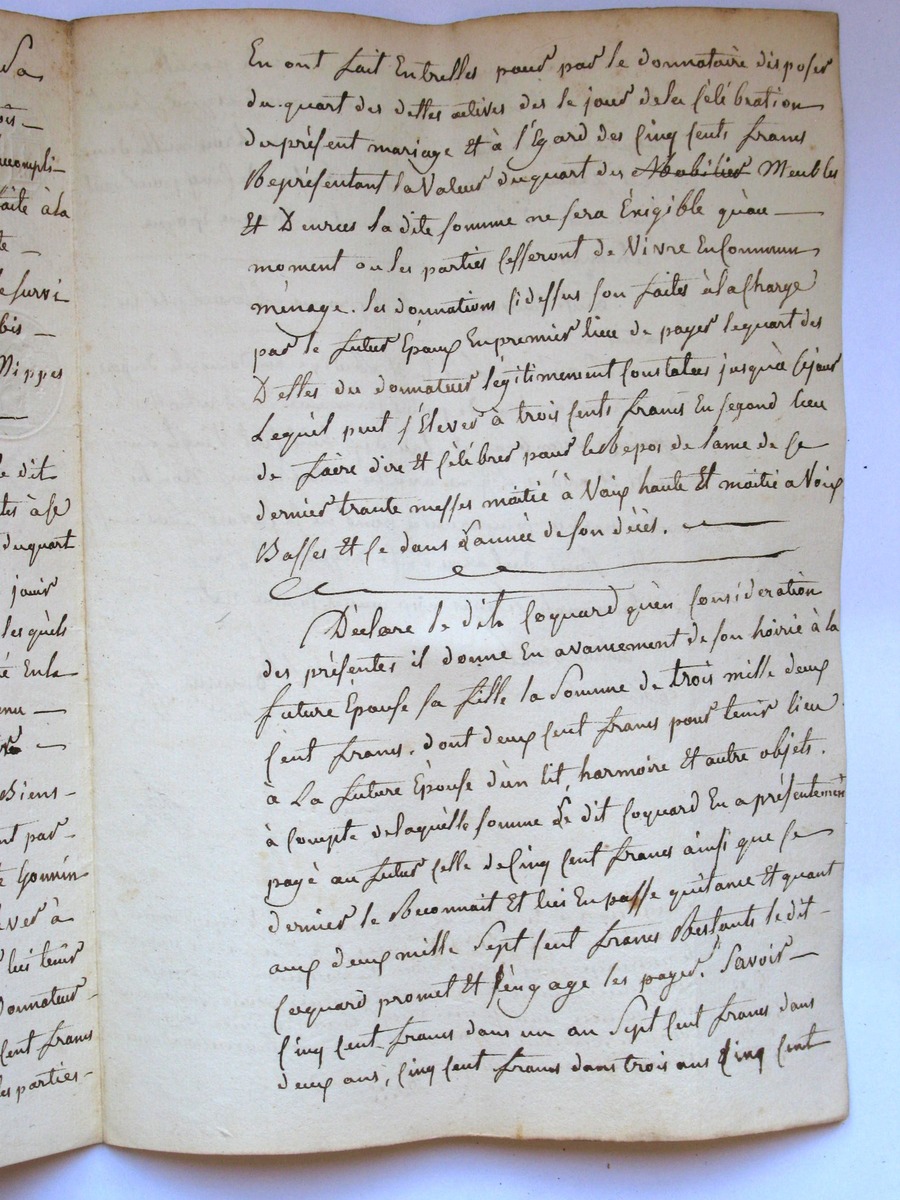 Sa
ois —
accompli-
faite à la
te —
le survi
bis —
Nippes
le dit
tes à se
du quart
jouir
les quèls
té En la
enu —
Biens -
nt par -
te Gonnin
lever à
lui tenir
Donnateur -
Cent francs
les parties -
En ont fait Entrelles pour par le donnataire disposer
du quart des dettes actives des le jour de la Célébration
du présent mariage Et à l'Egard des Cinq Cents francs
Représentant la Valeur du quart des Mobilier Meubles
Et Denrées la dite somme ne sera Éxigible qùau —
moment ou les parties Cesseront de Vivre En Commun
ménage. les donnations Cidessus son faites à la Charge
par le futur Époux En premier lieu de payer le quart des
Dettes du donnateur légitimement Constatées jusquà Cejour
Lequel peut s'Elever à trois Cents francs En segond lieu
de faire dire Et Célébrer pour le Repos de lame de Ce
dernier trante messes moitié à Voix haute Et moitié a Voix
Basses Et Ce dans L'année de son décès.
Déclare le dit Coquard qùen Considération
des présentes il donne En avancement de son hoirié à la
future Épouse sa fille la Somme de trois mille deux
Cent francs. dont deux Cent francs pour tenir lieu
à La future Épouse d'un lit, harmoire Et autre objets.
à Compte de laquèlle somme Le dit Coquard En a présentement
payé au futur Celle de Cinq Cent francs àinsi que Ce
dernier le Reconnait Et lui En passe quitance Et quant
aux deux mille Sept Cent francs Restants le dit -
Coquard promet Et s'éngage les payer. Savoir —
Cinq Cent francs dans un an Sept Cent francs dans
deux ans, Cinq Cent francs dans trois ans Cinq Cent